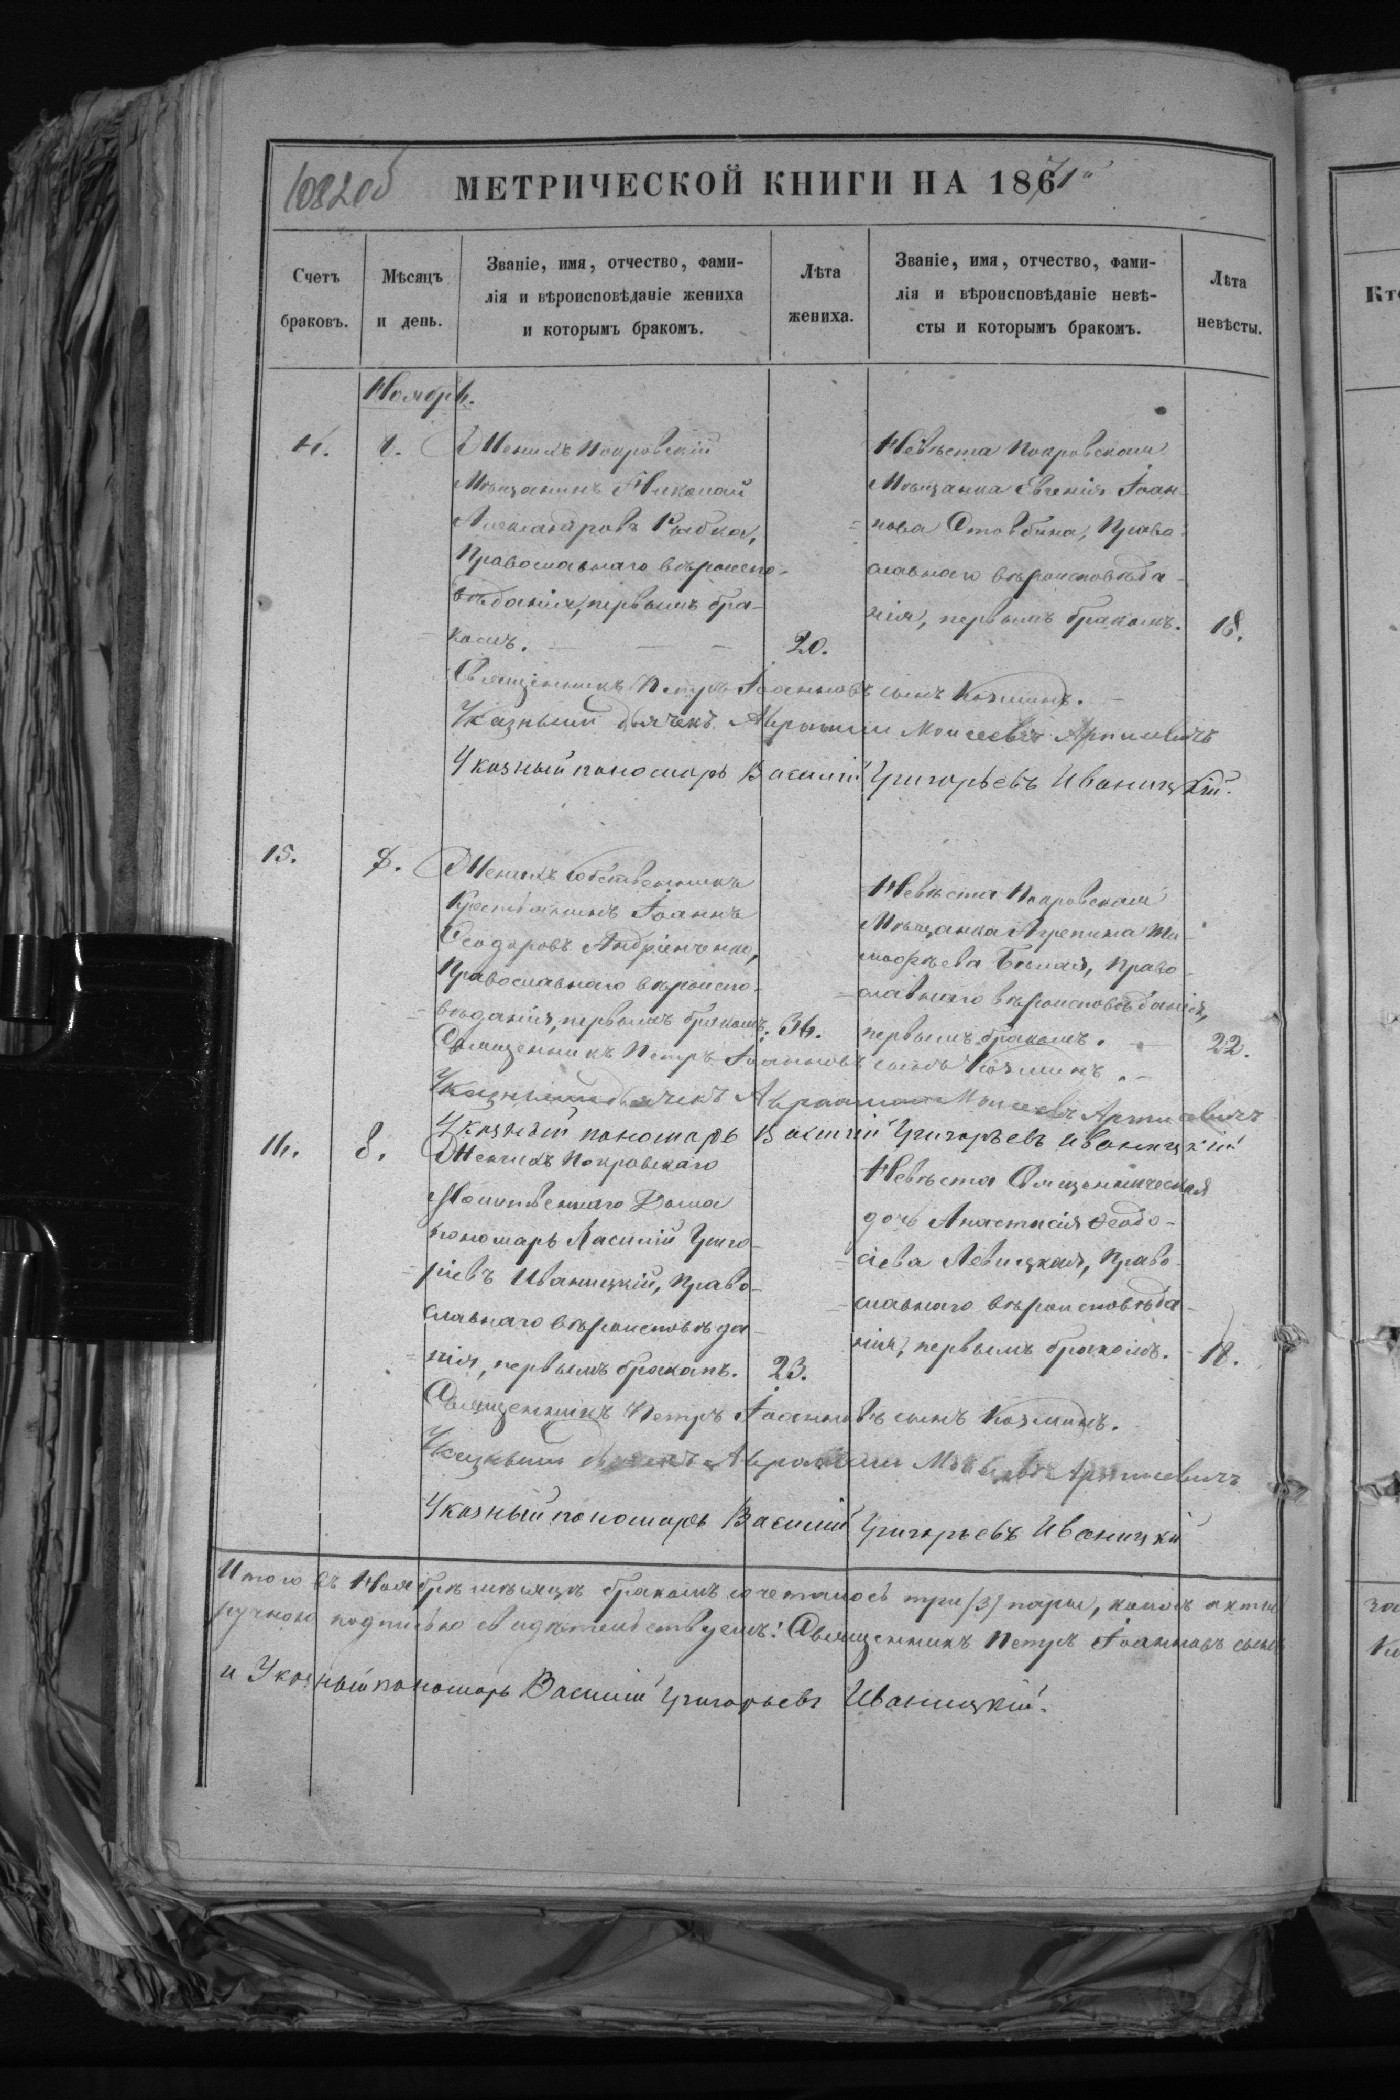 1082об
МЕТРИЧЕСКОЙ КНИГИ НА 1871й
Счетъ браковъ.
Мѣсяцъ и день.
Званіе, имя, отчество, фами-
лія и вѣроисповѣданіе жениха
и которымъ бракомъ.
Лѣта жениха.
Званіе, имя, отчество, фами-
лія и вѣроисповѣданіе невѣ-
сты и которымъ бракомъ.
Лѣта невѣсты.
Ноябрь.
Женихъ Покровскій
Мѣщанинъ Николай
Александровъ Рыбка,
Православнаго вѣроиспо-
вѣданія, первымъ бра-
комъ.
20.
Невѣста Покровская
Мѣщанка Евгенія Іоан-
нова Стовбина, Право-
славнаго вѣроисповѣда-
нія, первымъ бракомъ.
18.
Священникъ Петръ Іоанновъ сынъ Козминъ.
Указный дьячекъ Авраамъ Моисеевъ
Указный пономарь Василій Григорьевъ Иваницкій.
15.
8.
Женихъ собственникъ
Крестьянинъ Іоаннъ
Ѳеодоровъ Андріенченко,
Православнаго вѣроиспо-
вѣданія, первымъ бракомъ.
34.
Невѣста Покровская
Мѣщанка Агрепина Ти-
моѳѣева Бѣлая, Право-
славнаго вѣроисповѣданія,
первымъ бракомъ.
22.
Священникъ Петръ Іоанновъ сынъ Козминъ.
Указный дьячекъ Авраамъ Моисеевъ
Указный пономарь Василій Григорьевъ Иваницкій
16.
8.
Женихъ Покровскаго
Молитвеннаго Дома
пономарь Василій Григо-
ріевъ Иваницкій, Право-
славнаго вѣроисповѣда-
нія, первымъ бракомъ.
23.
Невѣста Священническая
дочь Анастасія Ѳеодо-
сіева Левицкая, Право-
славнаго вѣроисповѣда-
нія, первымъ бракомъ.
18.
Священникъ Петръ Іоанновъ сынъ Козминъ.
Указный дьячекъ Авраамъ Моисеевъ
Указный пономарь Василій Григорьевъ Иваницкій
Итого въ Ноябрѣ мѣсяцѣ бракомъ сочеталось три /3/ пары,
ручною подписью свидѣтельствуемъ: Священникъ Петръ Іоанновъ сынъ
и Указный пономарь Василій Григорьевъ Иваницкій.